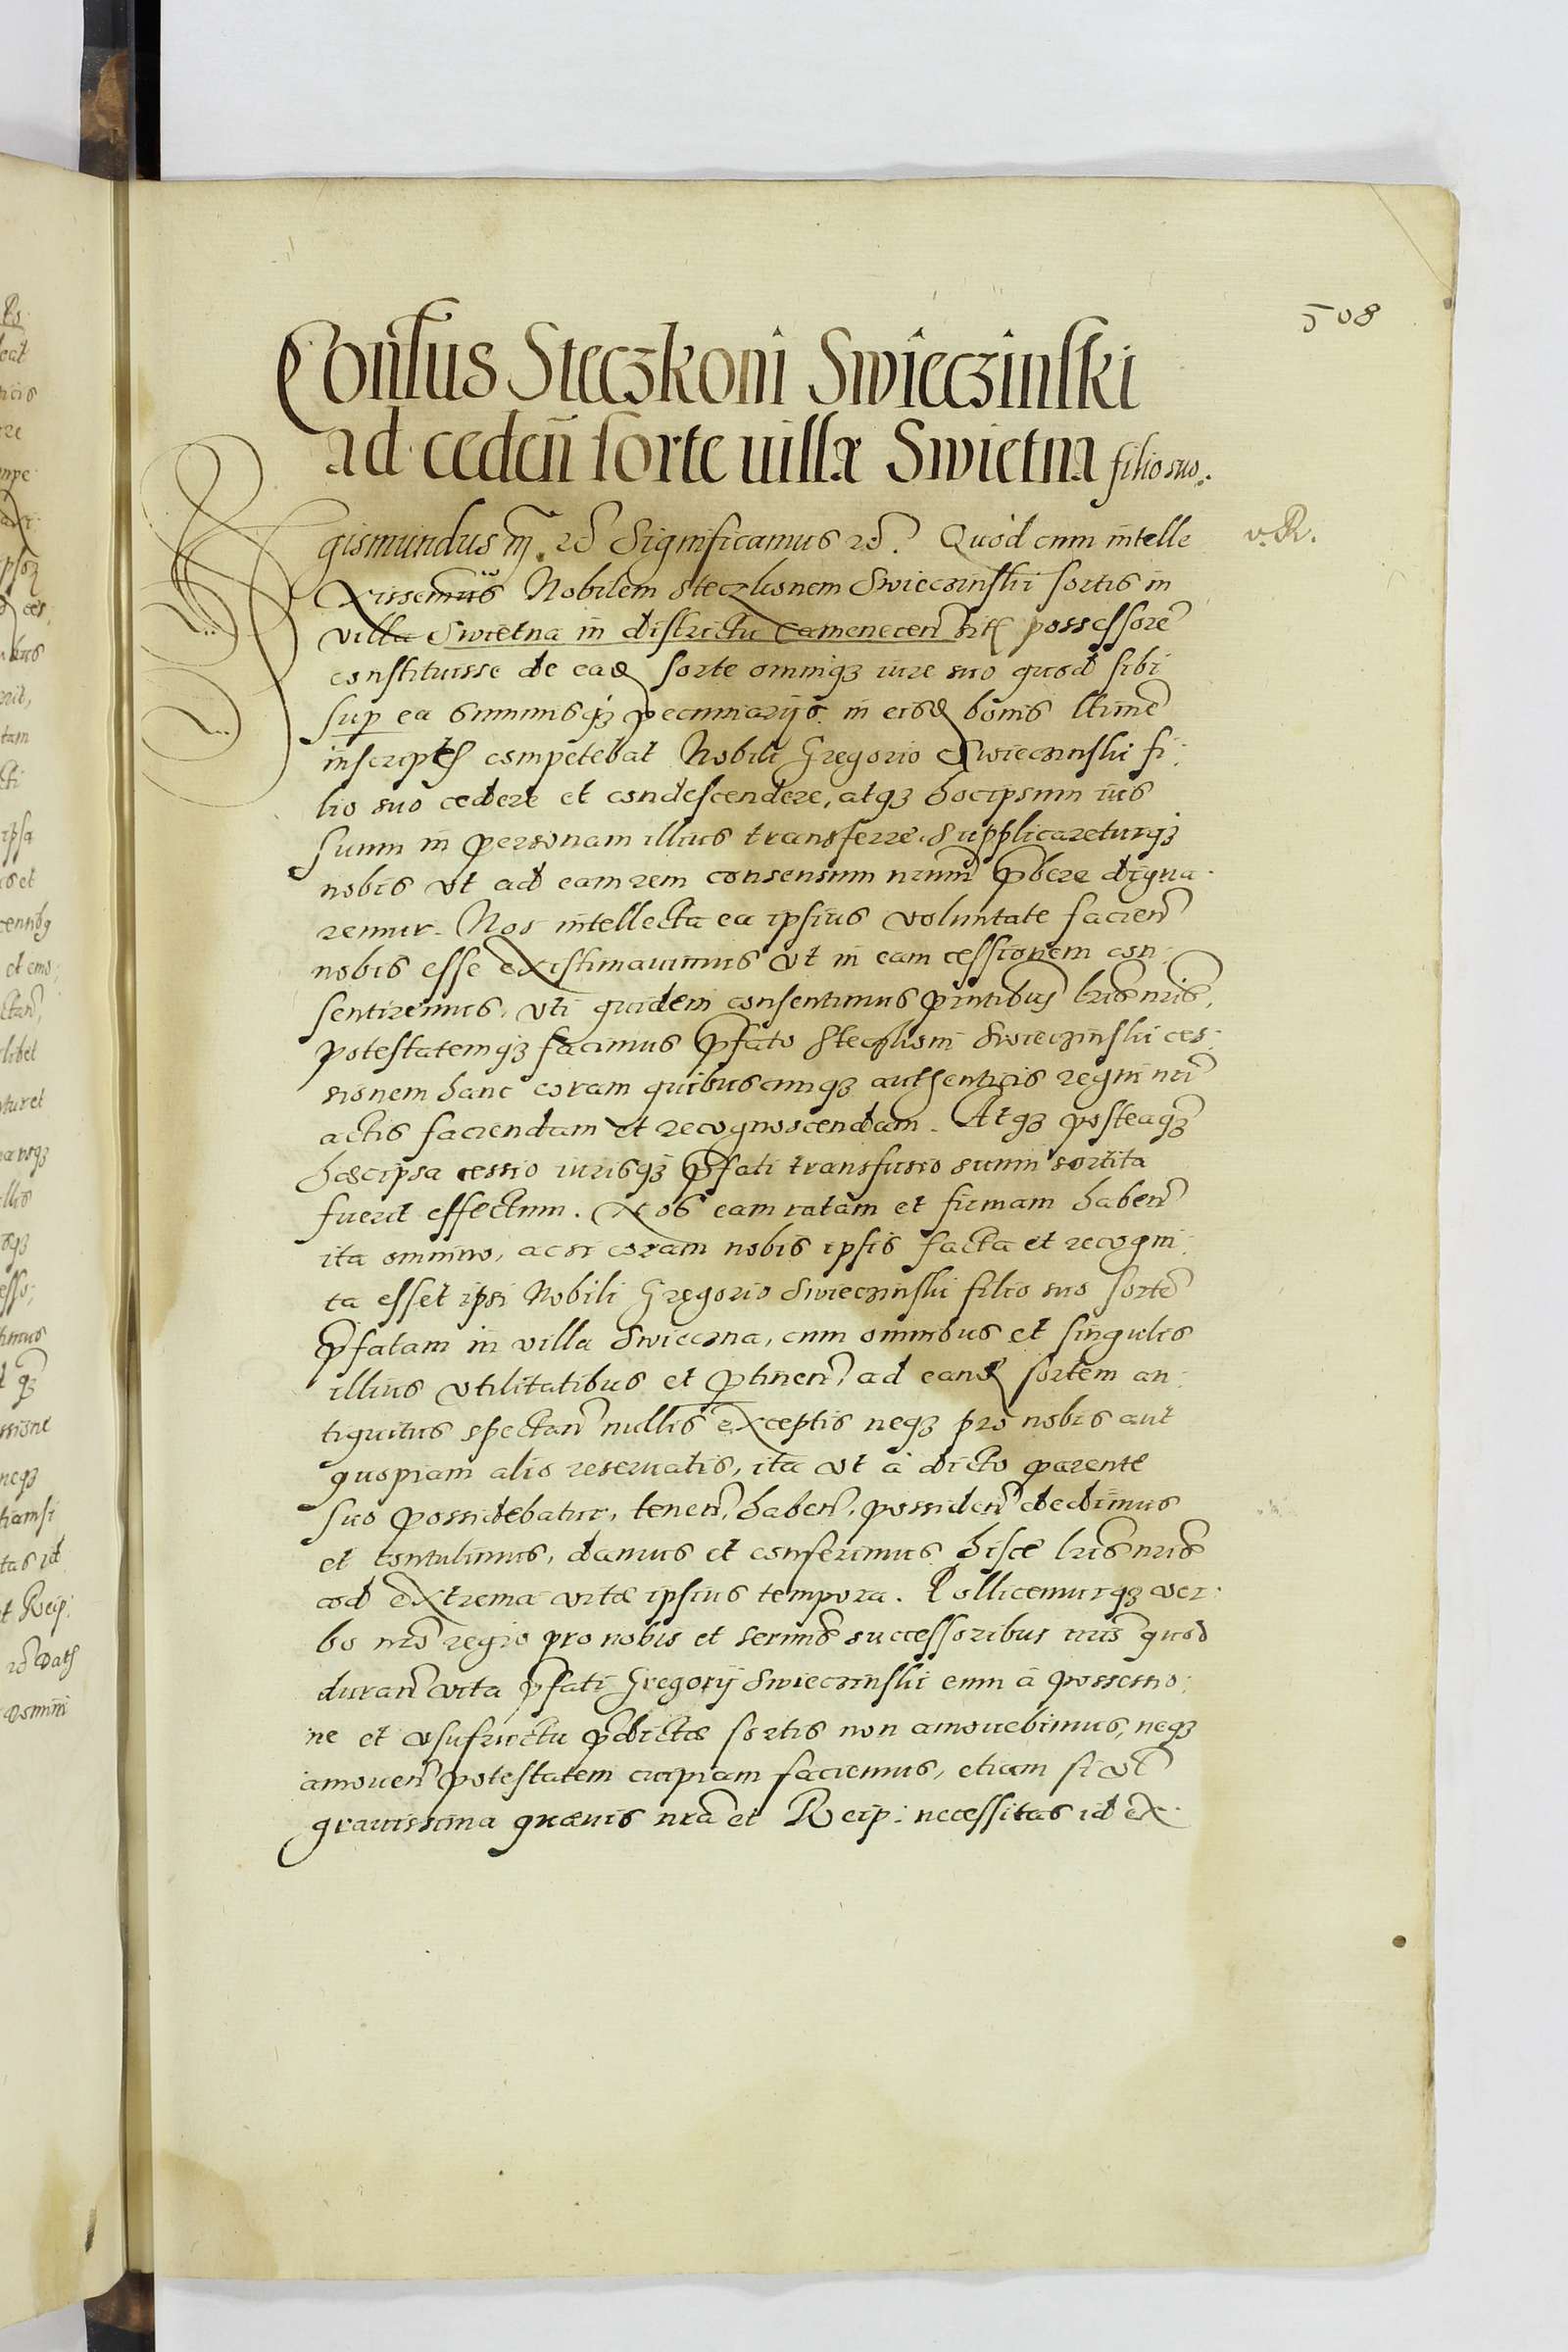 508
Consus Steczkoni Swieczinski
ad ceden sorte uillæ Swietna filio suo.
Sigismundus III. etc. Significamus etc. Quod cum intelle
v. R.
xissemus Nobilem Steczkonem Swieczinski sortis in
villa Swietna in districtu Camenecen sitę possessorē
constituisse de eadē sorte omniqz iure suo quod sibi
sup ea summisqz pecuniarijs in eisdē bonis ltime
inscriptis competebat Nobili Gregorio Swieczinski fi:
lio suo cedere et condescendere, atqz hocipsum ius
suum in personam illius transferre. Supplicareturqz
nobis vt ad eam rem consensum nrum pbere digna:
remur. Nos intellecta ea ipsius voluntate facien
nobis esse existimauimus vt in eam cessionem con:
sentiremus, vti quidem consentimus pntibus lris nris,
potestatemqz facimus pfato Steczkoni Swieczinski ces:
sionem hanc coram quibuscunqz authenticis regni nri
actis faciendam et recognoscendam. Atqz posteaqz
hæcipsa cessio iurisqz pfati transfusio suum sortita
fuerit effectum. Nos eam ratam et firmam haben
ita omnino, ac si coram nobis ipsis facta et recogni:
ta esset ipsi Nobili Gregorio Swieczinski filio suo sortē
pfatam in villa Swieczna, cum omnibus et singulis
illius vtilitatibus et ptinen, ad eandē sortem an:
tiquitus spectan nullis exceptis neqz pro nobis aut
quopiam alio reseruatis, ita vt à dicto parente
suo possidebatur, tenen, haben, possiden dedimus
et contulimus, damus et conferimus hisce lris nris
ad extrema vitæ ipsius tempora. Pollicemurqz ver:
bo nro regio pro nobis et sermis successoribus nris quod
duran vita pfati Gregorij Swieczinski eum à possessio:
ne et vsufructu pdictæ sortis non amouebimus, neqz
amouen potestatem cuipiam faciemus, etiam si vl
grauissima quæuis nra et Reip: necessitas id ex: